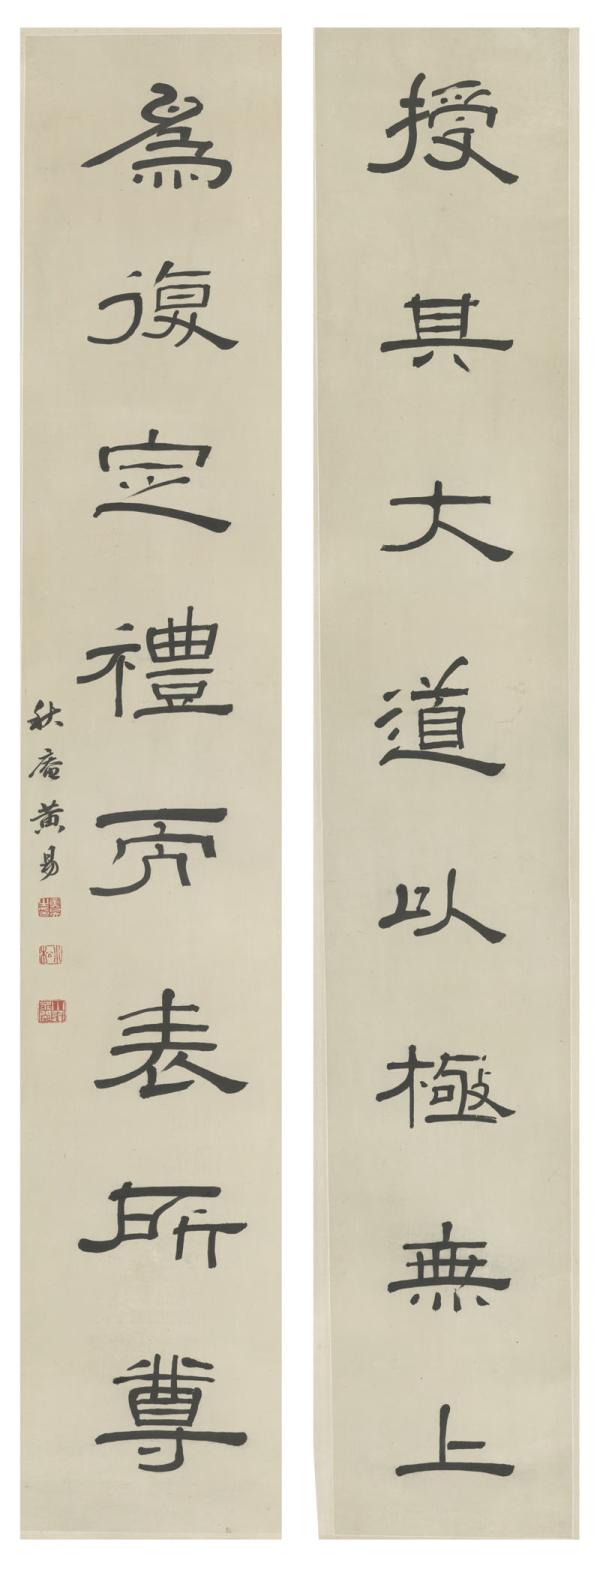 授其大道以極無上
為復定禮而表所尊
秋庵黃易